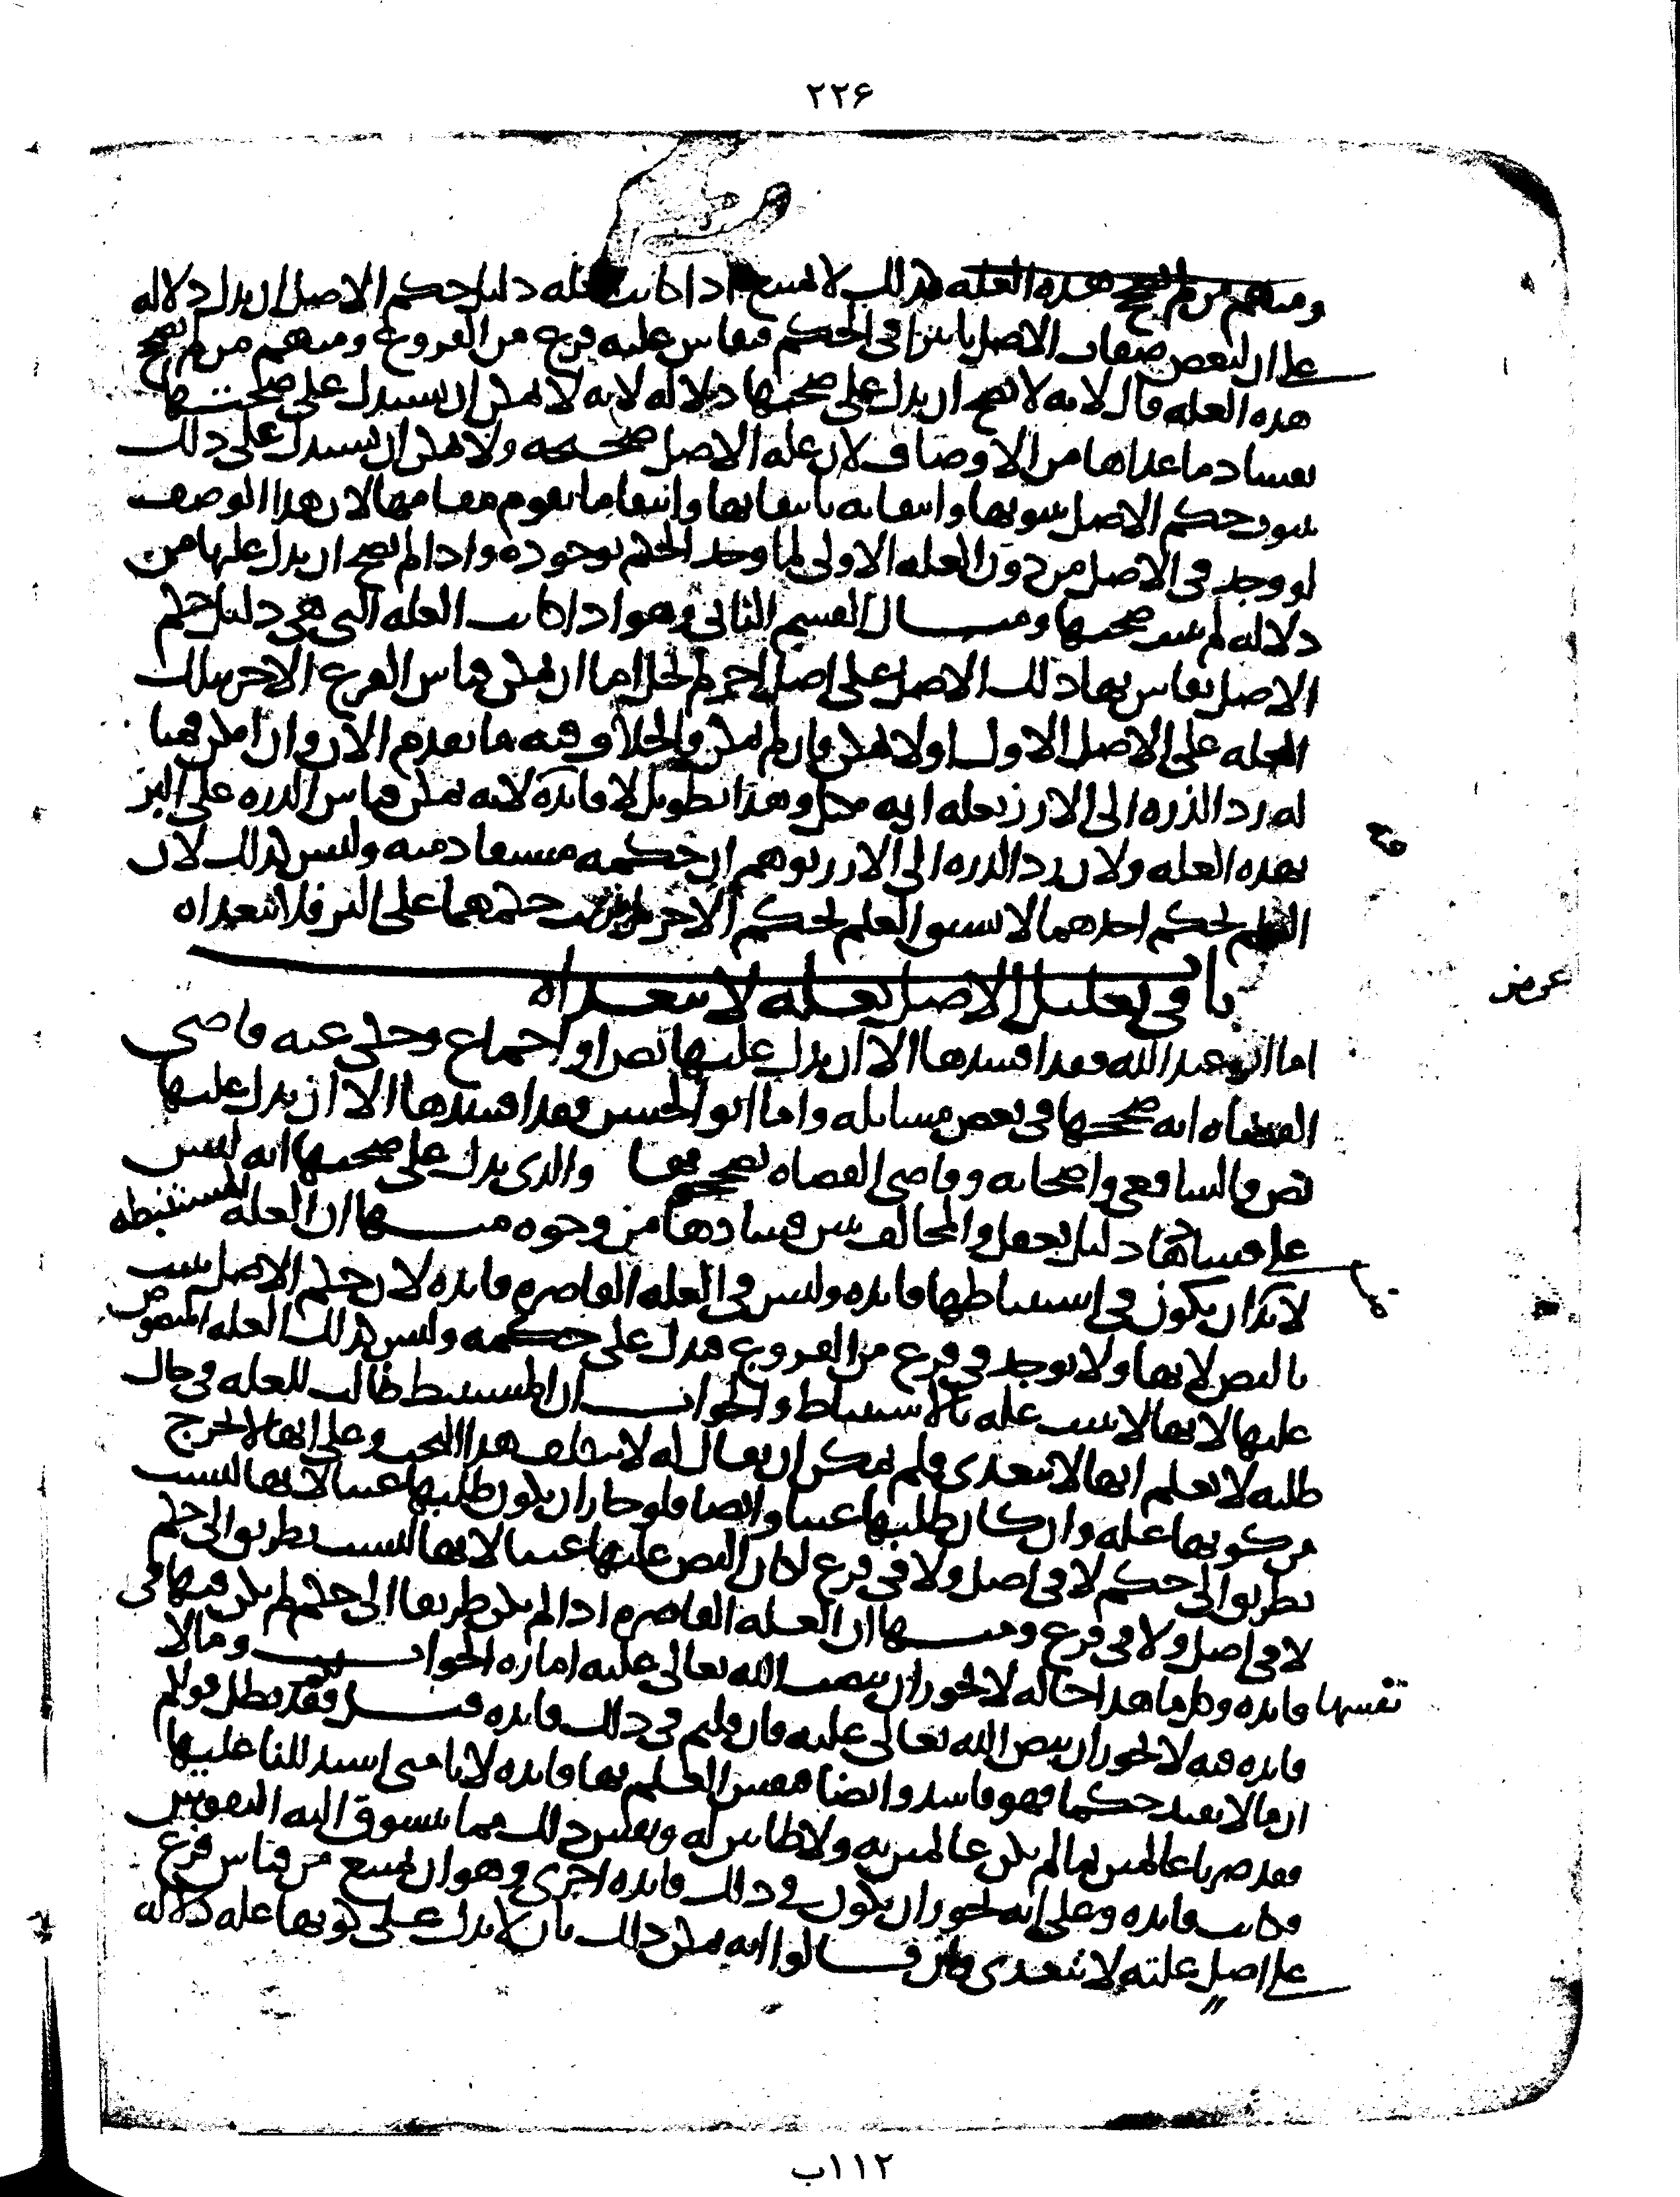 ٢٢۶
ومنهم من لم يصحح هذه العله كذلك لا يمتنع اذا كانت عله دليل حكم الاصل ان يدل دلاله
على ان لبعض صفات الاصل تاثيرا في الحكم فيقاس عليه فرع من الفروع ومنهم من لم يصحح
هذه العله قال لانه لا يصح ان يدل على صحتها دلاله لانه لا يمكن ان يستدل على صحتها
بفساد ما عداها من الاوصاف لان عله الاصل صحيحه ولا يمكن ان يستدل على ذلك
بثبوت حكم الاصل بثبوتها وانتفائه بانتفائها وانتفا ما يقوم مقامها لان هذا الوصف
لو وجد في الاصل من دون العله الاولى لما وجد الحكم بوجوده واذا لم يصح ان يدل عليها من
دلاله لم تثبت صحتها ومثال القسم الثاني وهو اذا كانت العله التي هي دليل حكم
الاصل يقاس بها ذلك الاصل على اصل اخر لم يخل اما ان يمكن قياس الفرع الاخر بتلك
العله على الاصل الاول او لا يمكن فان لم يمكن فالخلاف فيه ما تقدم الان وان امكن فمثا
له رد الذره الى الارز بعله انه مكيل وهذا تطويل لا فائدة لانه يمكن قياس الذره على البر
بهذه العله ولان رد الذره الى الارز يوهم ان حكمه مستفاد منه وليس كذلك لان
العلم بحكم احدهما لا يسبق العلم بحكم الاخر حكمهما على البر فلا تتعداه
باب في تعليل الاصل بعله لا تتعداه
اما ابو عبد الله فقد افسدها الا ان يدل عليها نص او اجماع وحكى عنه قاضي
القضاه انه صححها في بعض مسائله واما ابو الحسن فقد افسدها الا ان يدل عليها
نص والشافعي واصحابه وقاضي القضاه يصححونها والذي يدل على صحتها انه ليس
على فسادها دليل يحصل والمخالف يبين فسادها من وجوه منها ان العله المستنبطه
لا بد ان يكون في استنباطها فائده وليس في العله القاصره فائده لان حكم الاصل يثبت
بالنص لا بها ولا توجد في فرع من الفروع فتدل على حكمه وليس كذلك العله المنصوص
عليها لانها لا تثبت عله بالاستنباط والجواب ان المستنبط طالب للعله في حال
طلبه لا يعلم انها لا تتعدى فلم يمكن ان يقال له لا تتكلف هذا البحث وعلى انها لا تخرج
من كونها عله وان كان طلبها عبثا وايضا فلو جاز ان يكون طلبها عبثا لانها ليست
بطريق الى حكم لا في اصل ولا في فرع لكان النص عليها عبثا لانها ليست بطريق الى حكم
لا في اصل ولا في فرع ومنها ان العله القاصره اذا لم يكن طريقا الى حكم لم يكن فيها في
نفسها فائده وكل ما هذا حاله لا يجوز ان ينصب الله تعالى عليه اماره الجواب وما لا
فائده فيه لا يجوز ان ينص الله تعالى عليه فان قلتم في ذلك فائده قيل فقد بطل قولكم
ان ما لا يفيد حكما فهو فاسد وايضا فنفس العلم بها فائده لانا متى استدللنا عليها
فقد صرنا عالمين بما لم نكن عالمين به ولا ظانين له ونفس ذلك مما تتشوق اليه النفوس
فكانت فائده وعلى انه يجوز ان يكون في ذلك فائده اخرى وهو ان يمتنع من قياس فرع
على اصل علته لا تتعدى فان قالوا انه يمكن ذلك بان لا يدل على كونها عله دلاله
صح
عرض
١١٢ب